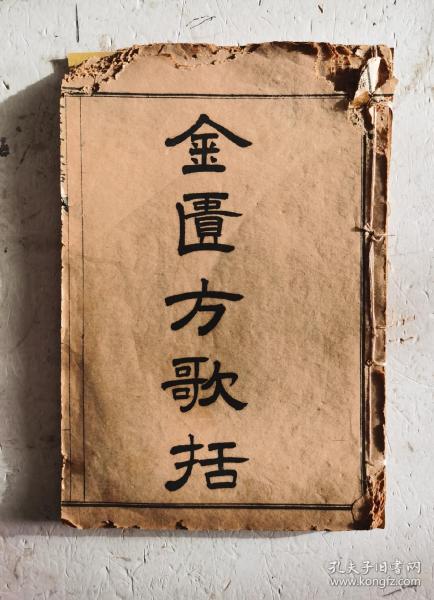 金匱方歌括
孔夫子旧书网
www.kongfz.com